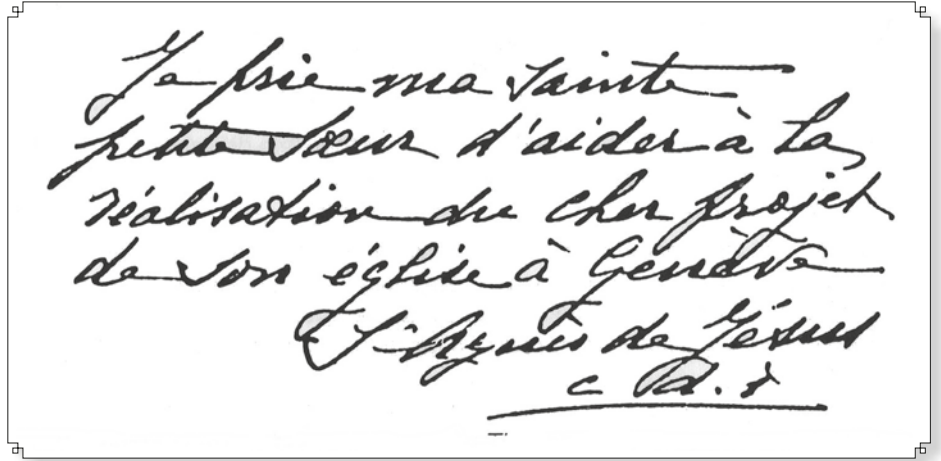 Je prie ma sainte
petite Sœur d'aider à la
réalisation du cher projet
de son église à Genève
Sr Agnès de Jésus
c d. i